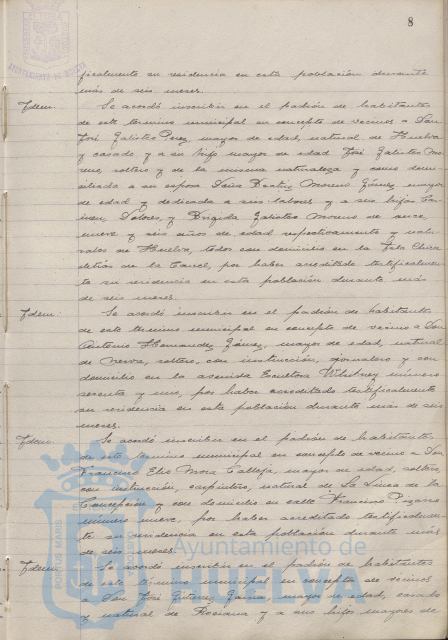 8
ficalmente su residencia en esta población durante
más de seis meses.
Idem: Se acordó inscribir en el padrón de habitantes
de este término municipal en concepto de vecinos a Don
José Galisteo Perez, mayor de edad, natural de Huelva
y casado y a su hijo mayor de edad José Galisteo Mo-
reno, soltero y de la misma naturaleza y como domi-
ciliada a su esposa Doña Beatriz Moreno Gómez mayor
de edad y dedicada a sus labores y a sus hijos Car-
men, Dolores, y Brigida Galisteo Moreno de once,
nueve y seis años de edad respectivamente y natu-
rales de Huelva, todos con domicilio en la Isla Chica
detrás de la Carcel, por haber acreditado testificalmen-
te su residencia en esta población durante más
de seis meses.
Idem: Se acordó inscribir en el padrón de habitantes
de este término municipal en concepto de vecino a Don
Antonio Hernandez Gómez, mayor de edad, natural
de Nerva, soltero, con instrucción, jornalero y con
domicilio en la avenida Escultora Whitney número
sesenta y uno, por haber acreditado testificalmente
su residencia en esta población durante más de seis
meses.
Idem: Se acordó inscribir en el padrón de habitantes
de este término municipal en concepto de vecino a Don
Francisco Elio Mora Calleja, mayor de edad, soltero,
con instrucción, carpintero, natural de La Linea de la
Concepción y con domicilio en calle Francisco Pizarro
número nueve, por haber acreditado testificalmen-
te su residencia en esta población durante más
de seis meses.
Idem: Se acordó inscribir en el padrón de habitantes
de este término municipal en concepto de vecinos
a Don José Gutierrez Garcia, mayor de edad, casado
y natural de Rociana y a sus hijos mayores de
Ayuntamiento de
HUELVA
PORTUS MARIS